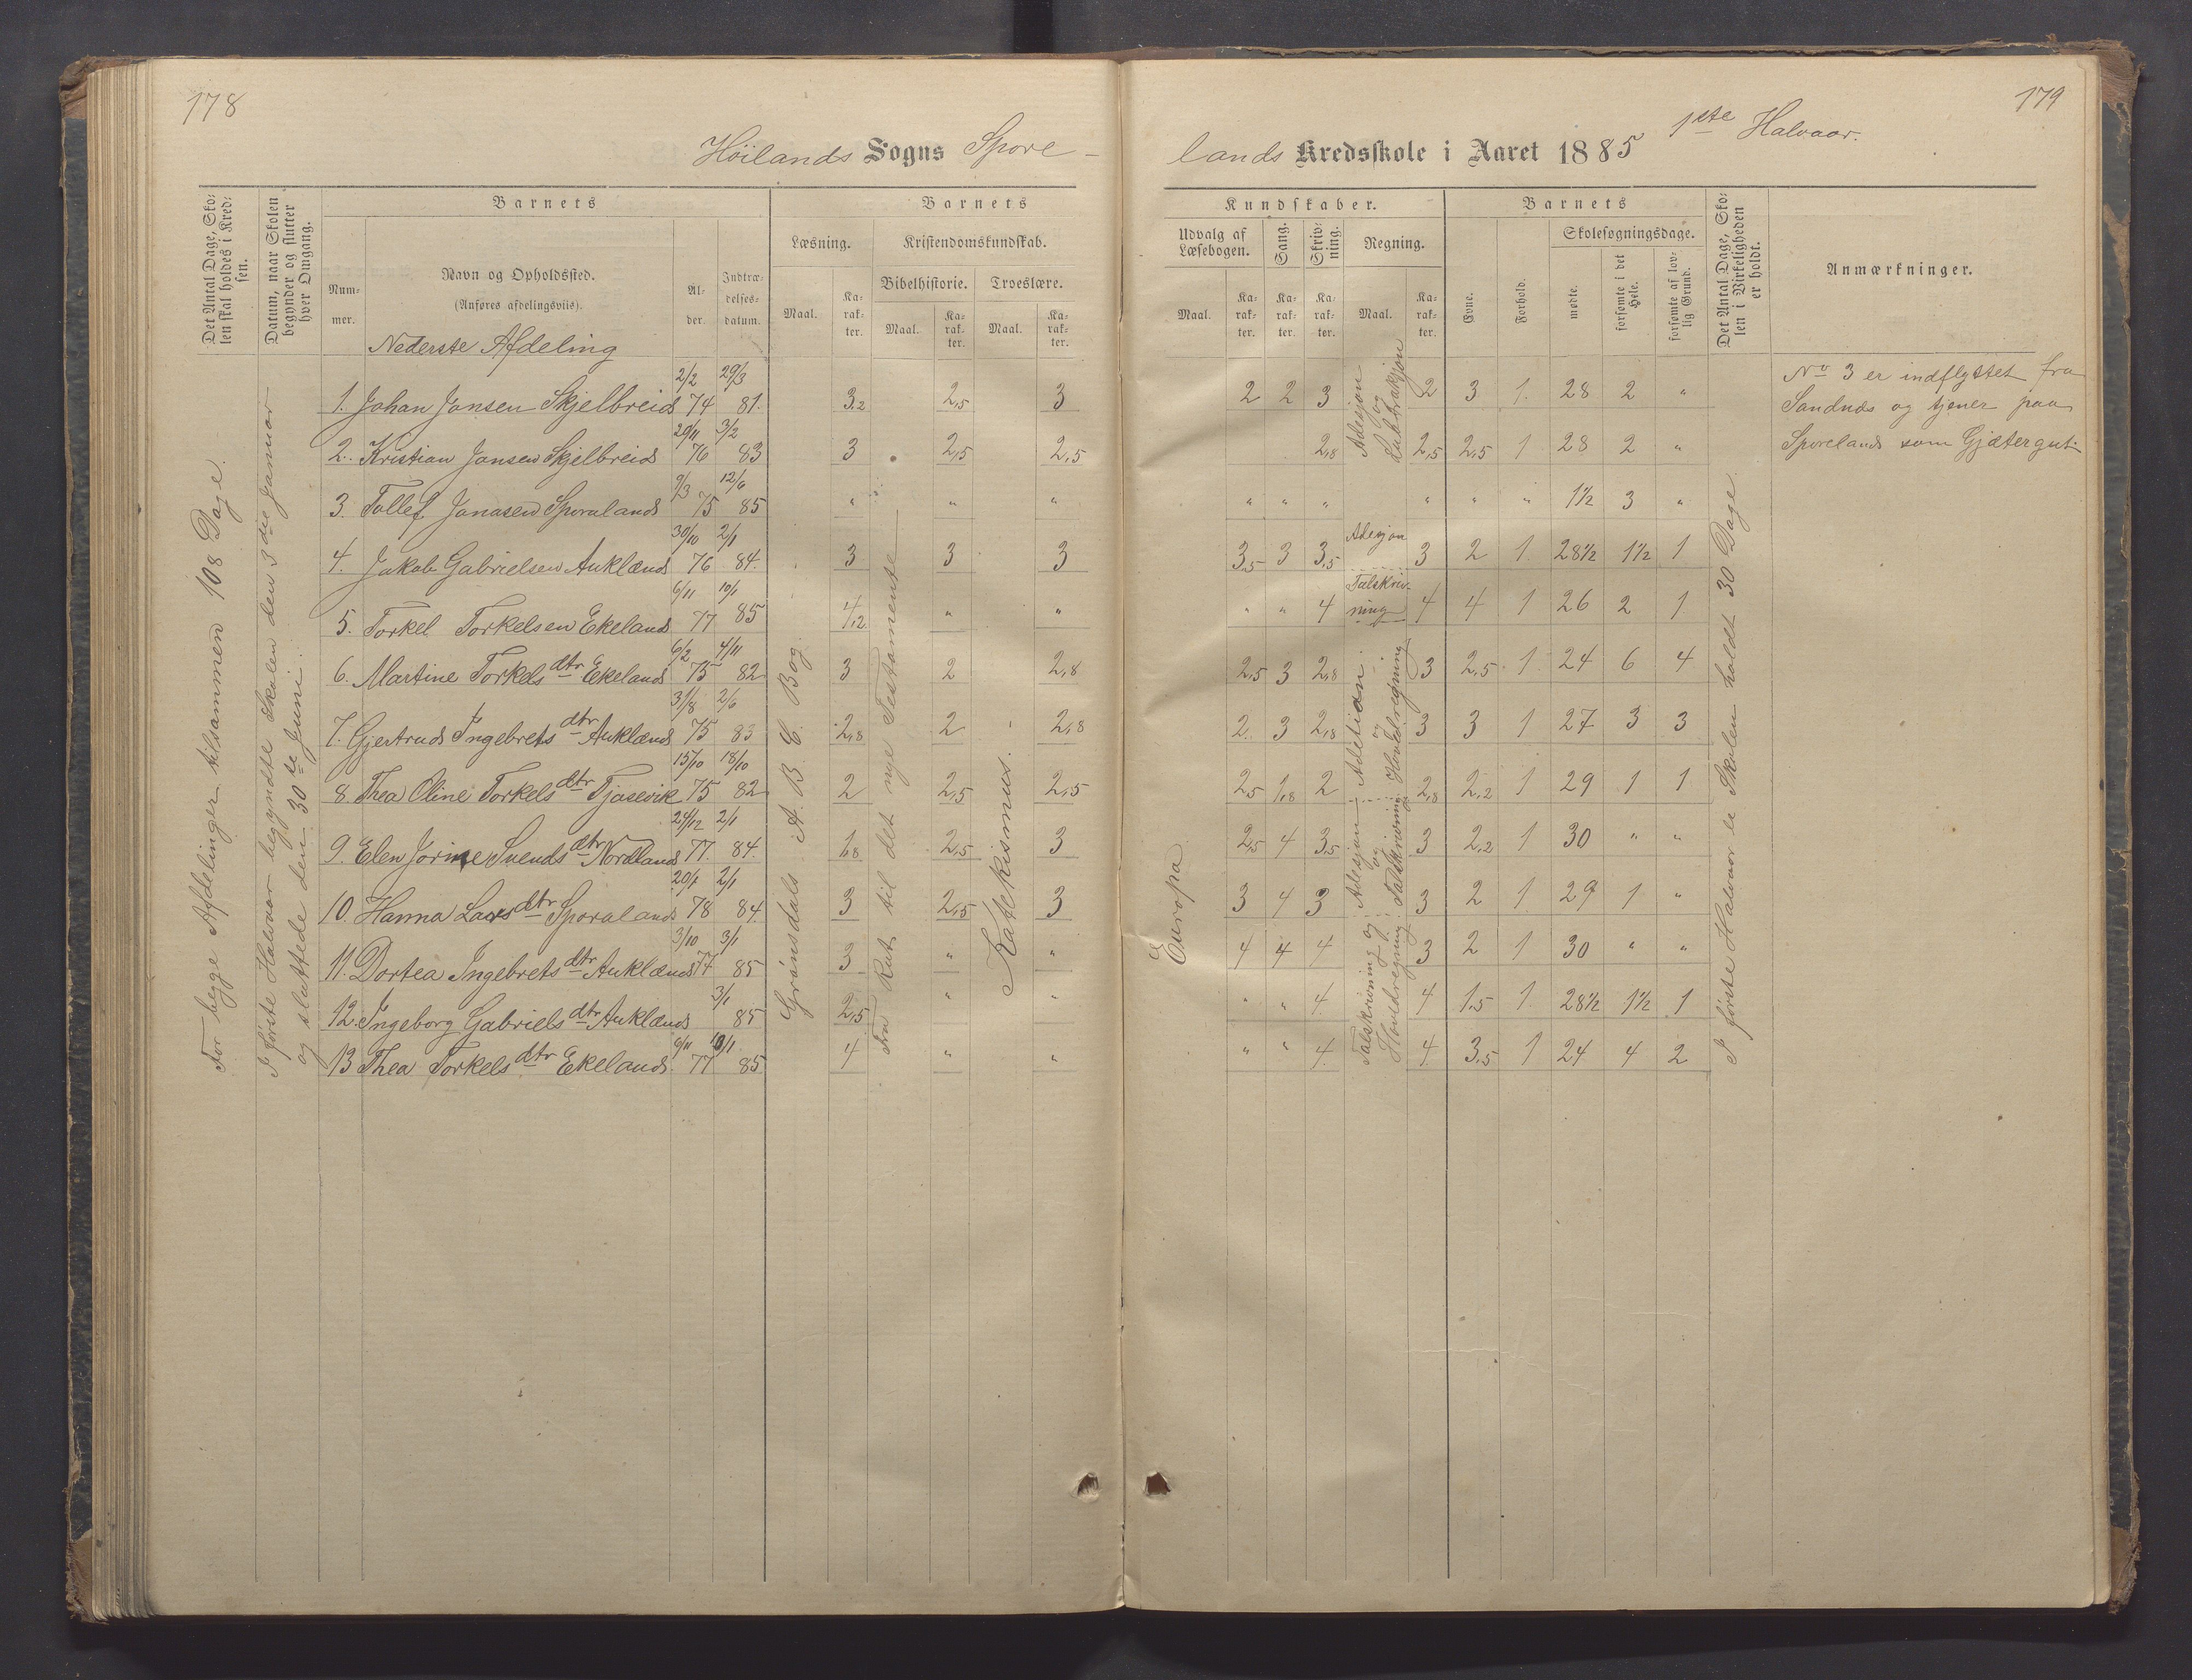 178
Höilands Sogns Spore-
Det Antal Dage, Sko-
len skal holdes i Kred-
sen.
Datum, naar Skolen
begynder og slutter
hver Omgang.
Barnets
Num-
mer.
Navn og Opholdssted.
(Anføres afdelingsviis).
Al-
der.
Indtræ-
delses-
datum.
Barnets
Læsning.
Kristendomskundskab.
Bibelhistorie. Troeslære.
Maal.
Ka-
rak-
ter.
Maal.
Ka-
rak-
ter.
Maal.
Ka-
rak-
ter.
Nederste Afdeling
1. Johan Jonsen Skjelbreid 2/2 74 29/3 81. 3,2 2,5 3
2. Kristian Jonsen Skjelbreid 29/11 76 3/2 83 3 2,5 2,5
3. Tollef Jonasen Sporaland 9/3 75 12/6 85 " " "
4. Jakob Gabrielsen Aukland 30/10 76 2/1 84. 3 3 3
5. Torkel Torkelsen Ekeland 6/11 77 10/1 85 4,2 " "
6. Martine Torkelsdtr Ekeland 6/2 75 4/11 82 3 2 2,8
7. Gjertrud Ingebretsdtr Aukland 31/8 75 2/6 83 2,8 2 2,8
8. Thea Oline Torkelsdtr Tjasevik 15/10 75 18/10 82 2 2,5 2,5
9. Elen Jorine Svendsdtr Nordland 24/12 77. 2/1 84. 1,8 2,5 3
10. Hanna Larsdtr Sporaland 20/1 78 2/1 84. 3 2,5 3
11. Dortea Ingebretsdtr Aukland 3/10 77 3/1 85 3 " "
12. Ingeborg Gabrielsdtr Aukland 3/1 85 2,5 " "
13 Thea Torkelsdtr Ekeland. 6/11 77 10/1 85 4 " "
For begge Afdelinger tilsammen 108 Dage.
I første Halvaar begyndte Skolen den 3die Januar
og sluttede den 30te Juni.
Grønsdals A. B. C. Bog.
Fra Rut til det nye Testamente
Katekismus.
179
lands Kredsskole i Aaret 1885 1ste Halvaar.
Kundskaber.
Udvalg af
Læsebogen.
Sang.
Skriv-
ning.
Regning.
Maal.
Ka-
rak-
ter.
Ka-
rak-
ter.
Ka-
rak-
ter.
Maal.
Ka-
rak-
ter.
Barnets
Evne.
Forhold.
Skolesøgningsdage.
mødte.
forsømte i det
Hele.
forsømte af lov-
lig Grund.
Det Antal Dage, Sko-
len i Virkeligheden
er holdt.
Anmærkninger.
2 2 3 2 3 1. 28 2 "
2,8 2,5 2,5 1 28 2 "
" " " " " " 1½ 3 "
3,5 3 3,5 3 2 1 28½ 1½ 1
" " 4 4 4 1 26 2 1
2,5 3 2,8 3 2,5 1 24 6 4
2. 3 2,8 3 3 1 27 3 3
2,5 1,8 2 2,8 2,2 1 29 1 1
2,5 4 3,5 3 2,2 1 30 " "
3 4 3 3 2 1 29 1 "
4 4 4 3 2 1 30 " "
" " 4 4 1,5 1 28½ 1½ 1
" " 4 4 3,5 1 24 4 2
Europa.
Adesjon
og
Subtraksjon
Adesjon
Talskriv-
ning
Adetion
og
Hovdelregning
Adesjon
og
Talskrivning
Talskrivning og
Hovedregning
I første Halvaar er Skolen holdt 30 Dage.
No 3 er indflyttet fra
Sandnæs og tjener paa
Sporeland som Gjætergut.